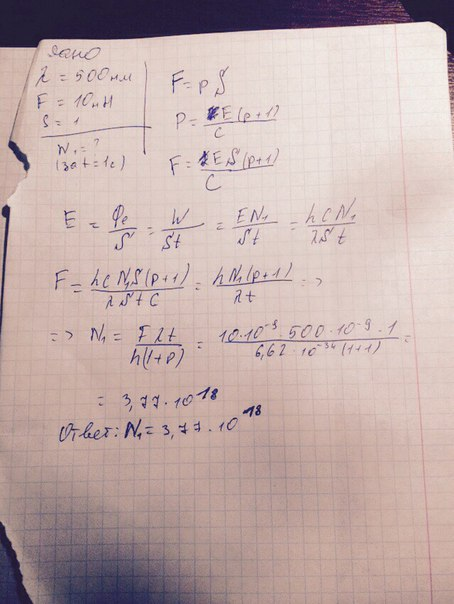 Дано
λ = 500 нм
F = 10 нН
S = 1
N₁ = ?
(за t = 1с)
F = p S
P = E(p+1)/C
F = ES(p+1)/C
E = Φe/S = W/St = EN₁/St = hCN₁/λSt
F = hCN₁S(p+1)/λStC = hN₁(p+1)/λt =>
=> N₁ = Fλt/h(1+p) = 10·10⁻⁹·500·10⁻⁹·1/6,62·10⁻³⁴(1+1) =
= 3,77·10¹⁸
Ответ: N₁ = 3,77·10¹⁸